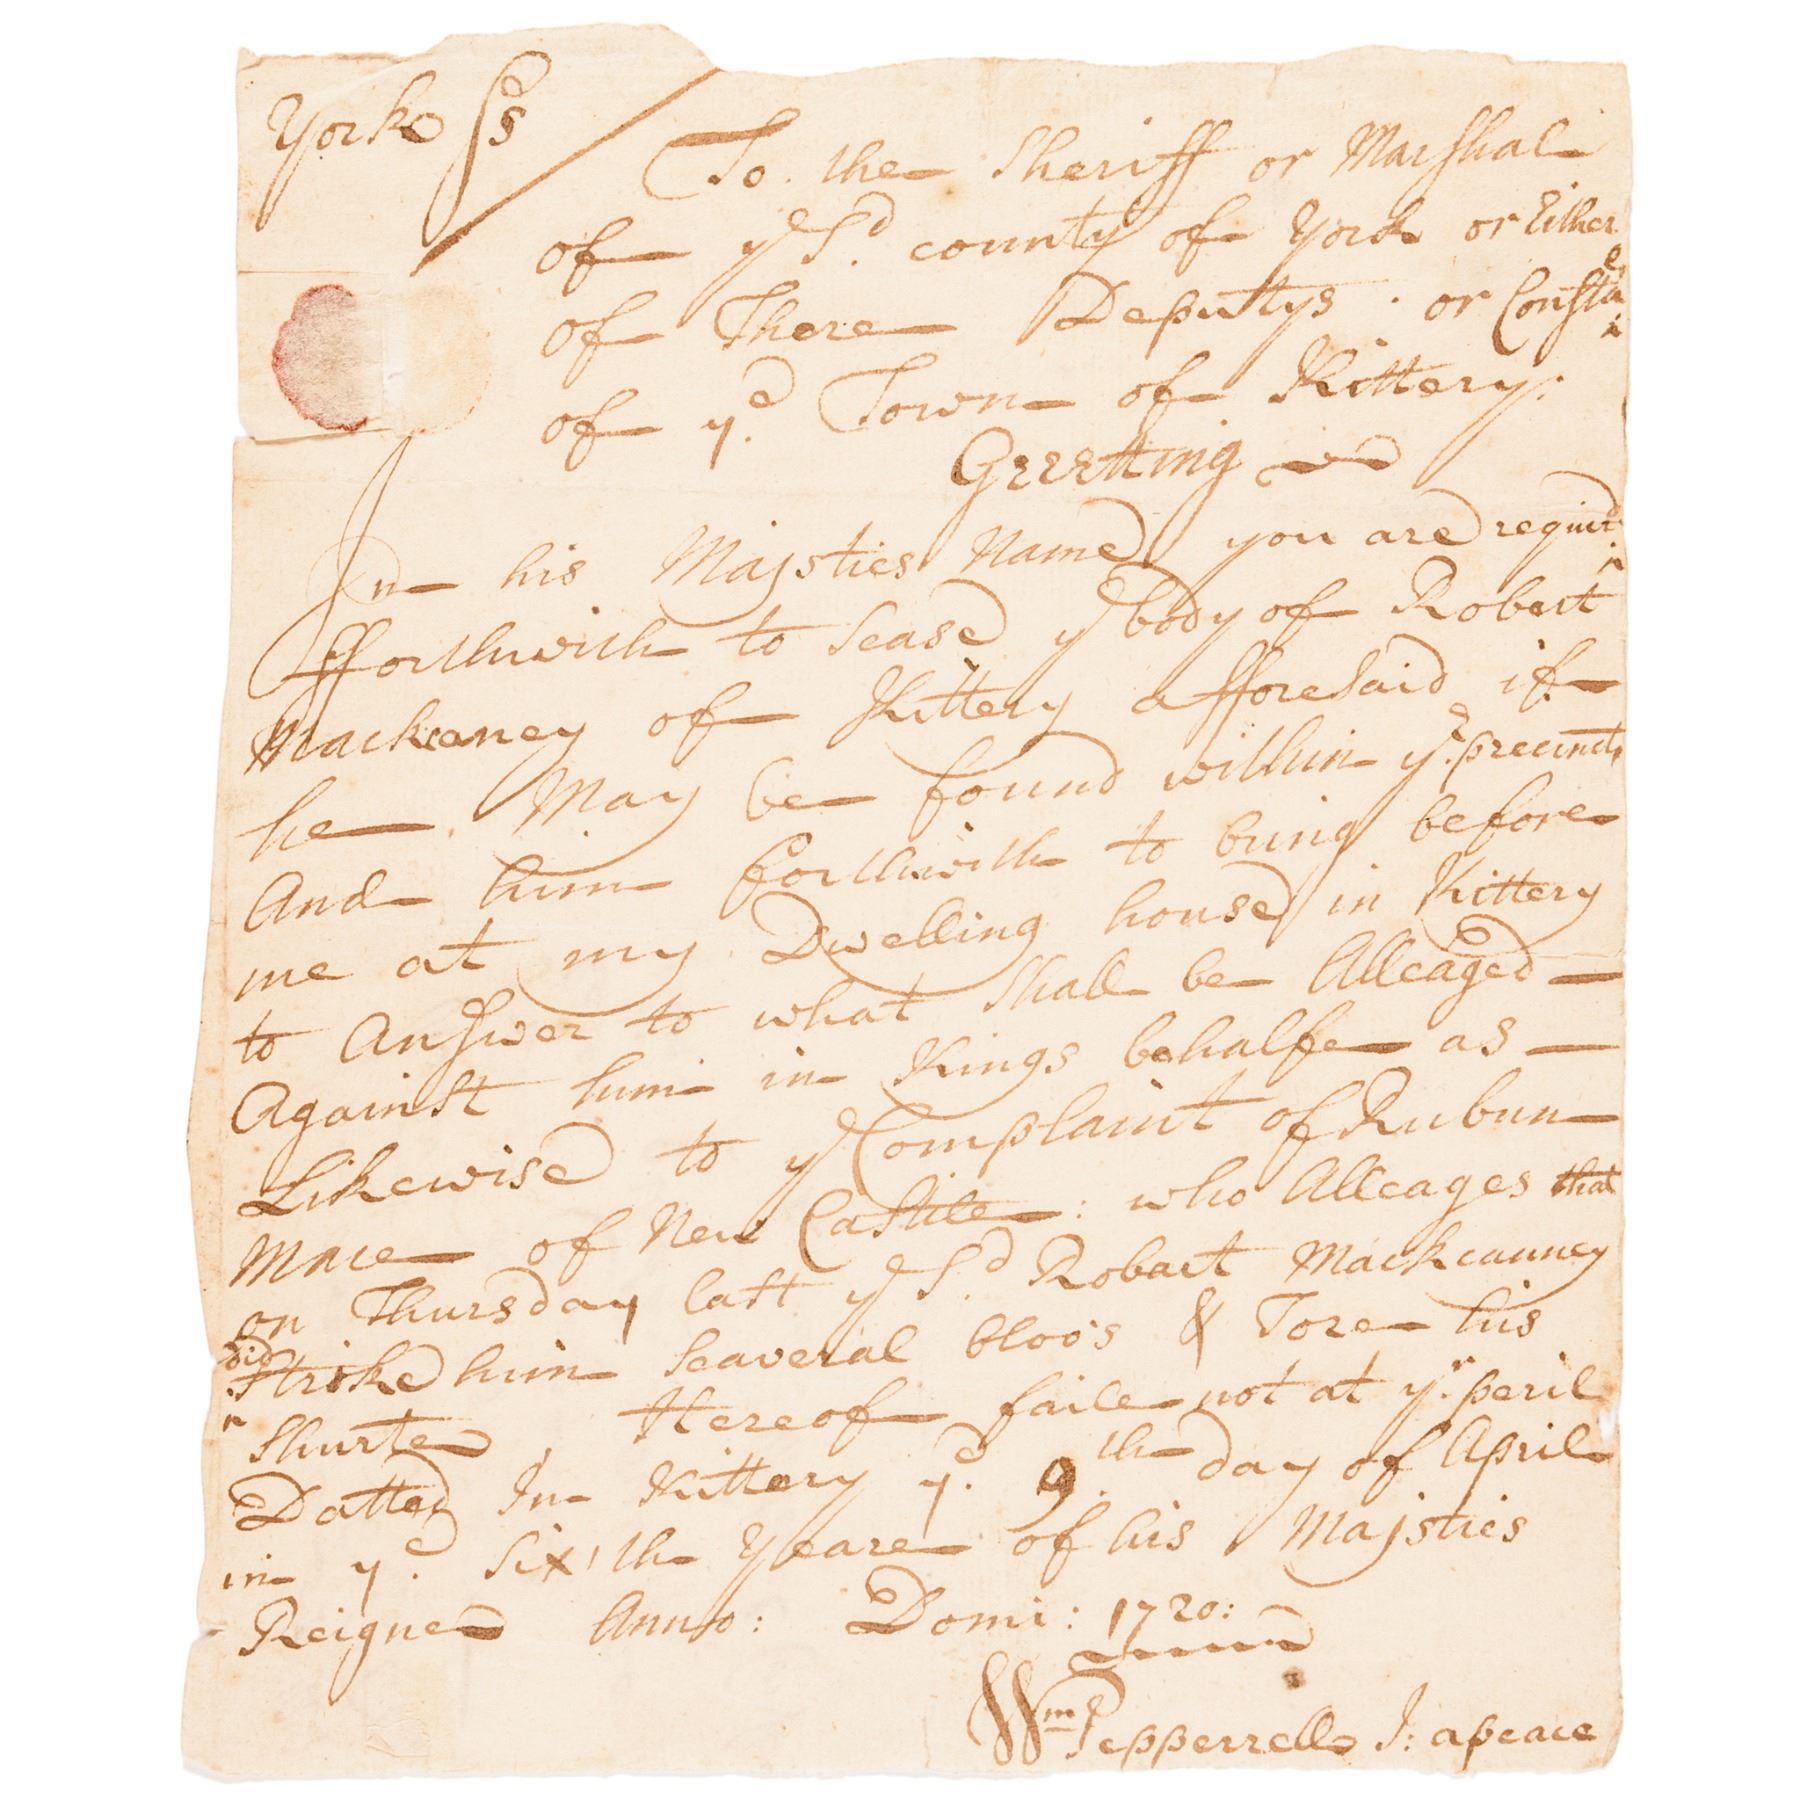 Yorke ss
To the Sheriff or Marshal
of ye Sd county of York or Either
of There Deputys or Consta
of ye Town of Kittery.
Greetting
In his Majsties Name you are requird
fforthwith to Sease ye body of Robert
Mackaney of Kittery afforesaid if
he May be found within yr precincts
And him forthwith to bring before
me at my Dwelling house in Kittery
to Answer to what Shall be Alleaged
Against him in Kings behalfe as
Likewise to ye Complaint of Rubun
Mace of New Castlle: who Alleages that
on Thursday last ye Sd Robart Mackcanney
did
Strike him Seaveral bloo's & Tore his
Shurte, Hereof faile not at yr peril
Datted In Kittery ye 9th day of April
in ye Sixth Yeare of his Majsties
Reigne Anno: Domi: 1720:
Wm Pepperrell J: apeace